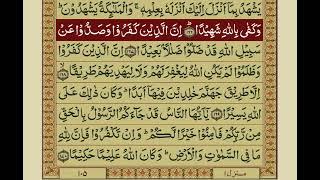 يَشْهَدُ بِمَآ اَنْزَلَ اِلَيْكَ اَنْزَلَهٗ بِعِلْمِهٖ ۚ وَالْمَلٰٓئِكَةُ يَشْهَدُوْنَ ؕ
وَكَفٰى بِاللّٰهِ شَهِيْدًا ؕ ﴿۱۶۶﴾ اِنَّ الَّذِيْنَ كَفَرُوْا وَصَدُّوْا عَنْ
سَبِيْلِ اللّٰهِ قَدْ ضَلُّوْا ضَلٰلًاۢ بَعِيْدًا ﴿۱۶۷﴾ اِنَّ الَّذِيْنَ كَفَرُوْا
وَظَلَمُوْا لَمْ يَكُنِ اللّٰهُ لِيَغْفِرَ لَهُمْ وَلَا لِيَهْدِيَهُمْ طَرِيْقًا ۙ ﴿۱۶۸﴾
اِلَّا طَرِيْقَ جَهَنَّمَ خٰلِدِيْنَ فِيْهَآ اَبَدًا ؕ وَكَانَ ذٰلِكَ عَلَى
اللّٰهِ يَسِيْرًا ﴿۱۶۹﴾ يٰٓاَيُّهَا النَّاسُ قَدْ جَآءَكُمُ الرَّسُوْلُ بِالْحَقِّ
مِنْ رَّبِّكُمْ فَاٰمِنُوْا خَيْرًا لَّكُمْ ؕ وَاِنْ تَكْفُرُوْا فَاِنَّ لِلّٰهِ
مَا فِى السَّمٰوٰتِ وَالْاَرْضِ ؕ وَكَانَ اللّٰهُ عَلِيْمًا حَكِيْمًا ﴿۱۷۰﴾
منزل ۱
۱۰۵